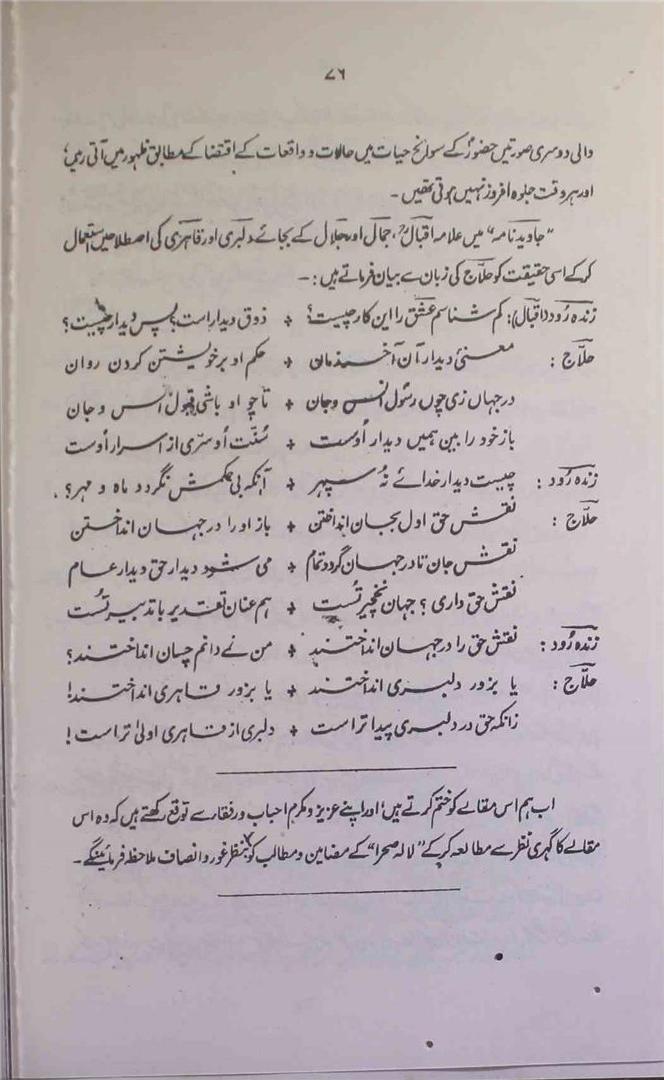 ۷۶
والی دوسری صورتیں حضورؐ کے سوانح حیات میں حالات و واقعات کے اقتضا کے مطابق ظہور میں آتی رہیں؛
اور ہر وقت جلوہ افروز نہیں ہوتی تھیں۔
"جاوید نامہ" میں علامہ اقبالؒ، جمال اور جلال کے بجائے دلبری اور قاہری کی اصطلاحیں استعمال
کر کے اسی حقیقت کو حلّاج کی زبان سے بیان فرماتے ہیں:۔
زندہ رُود (اقبال): کم شناسم عشق را این کار چیست؟ + ذوق دیدار است؟ پس دیدار چیست؟
حلّاج: معنیٔ دیدار آن آخر زمان + حکم او بر خویشتن کردن روان
در جہاں زی چوں رسول انس و جان + تا چو او باشی قبول انس و جان
باز خود را بین ہمیں دیدار اوست + سُنّت اُو سرّی از اسرار اوست
زندہ رُود: چیست دیدار خدائے نُہ سپہر + آنکہ بی حکمش نگردد ماہ و مہر؟
حلّاج: نقش حق اول بجان انداختن + باز او را در جہان انداختن
نقش جان تا در جہان گردد تمام + می شود دیدار حق دیدار عام
نقش حق داری؟ جہان نخچیر تست + ہم عنان تقدیر با تدبیر تست
زندہ رُود: نقش حق را در جہان انداختند + من نمے دانم چسان انداختند؟
حلّاج: یا بزور دلبری انداختند + یا بزور قاہری انداختند!
زانکہ حق در دلبری پیدا تر است + دلبری از قاہری اولیٰ تر است!
اب ہم اس مقالے کو ختم کرتے ہیں؛ اور اپنے عزیز و مکرم احباب و رفقا سے توقع رکھتے ہیں کہ وہ اس
مقالے کا گہری نظر سے مطالعہ کر کے "لالہ صحرا" کے مضامین و مطالب کو بنظر غور و انصاف ملاحظہ فرمائینگے۔